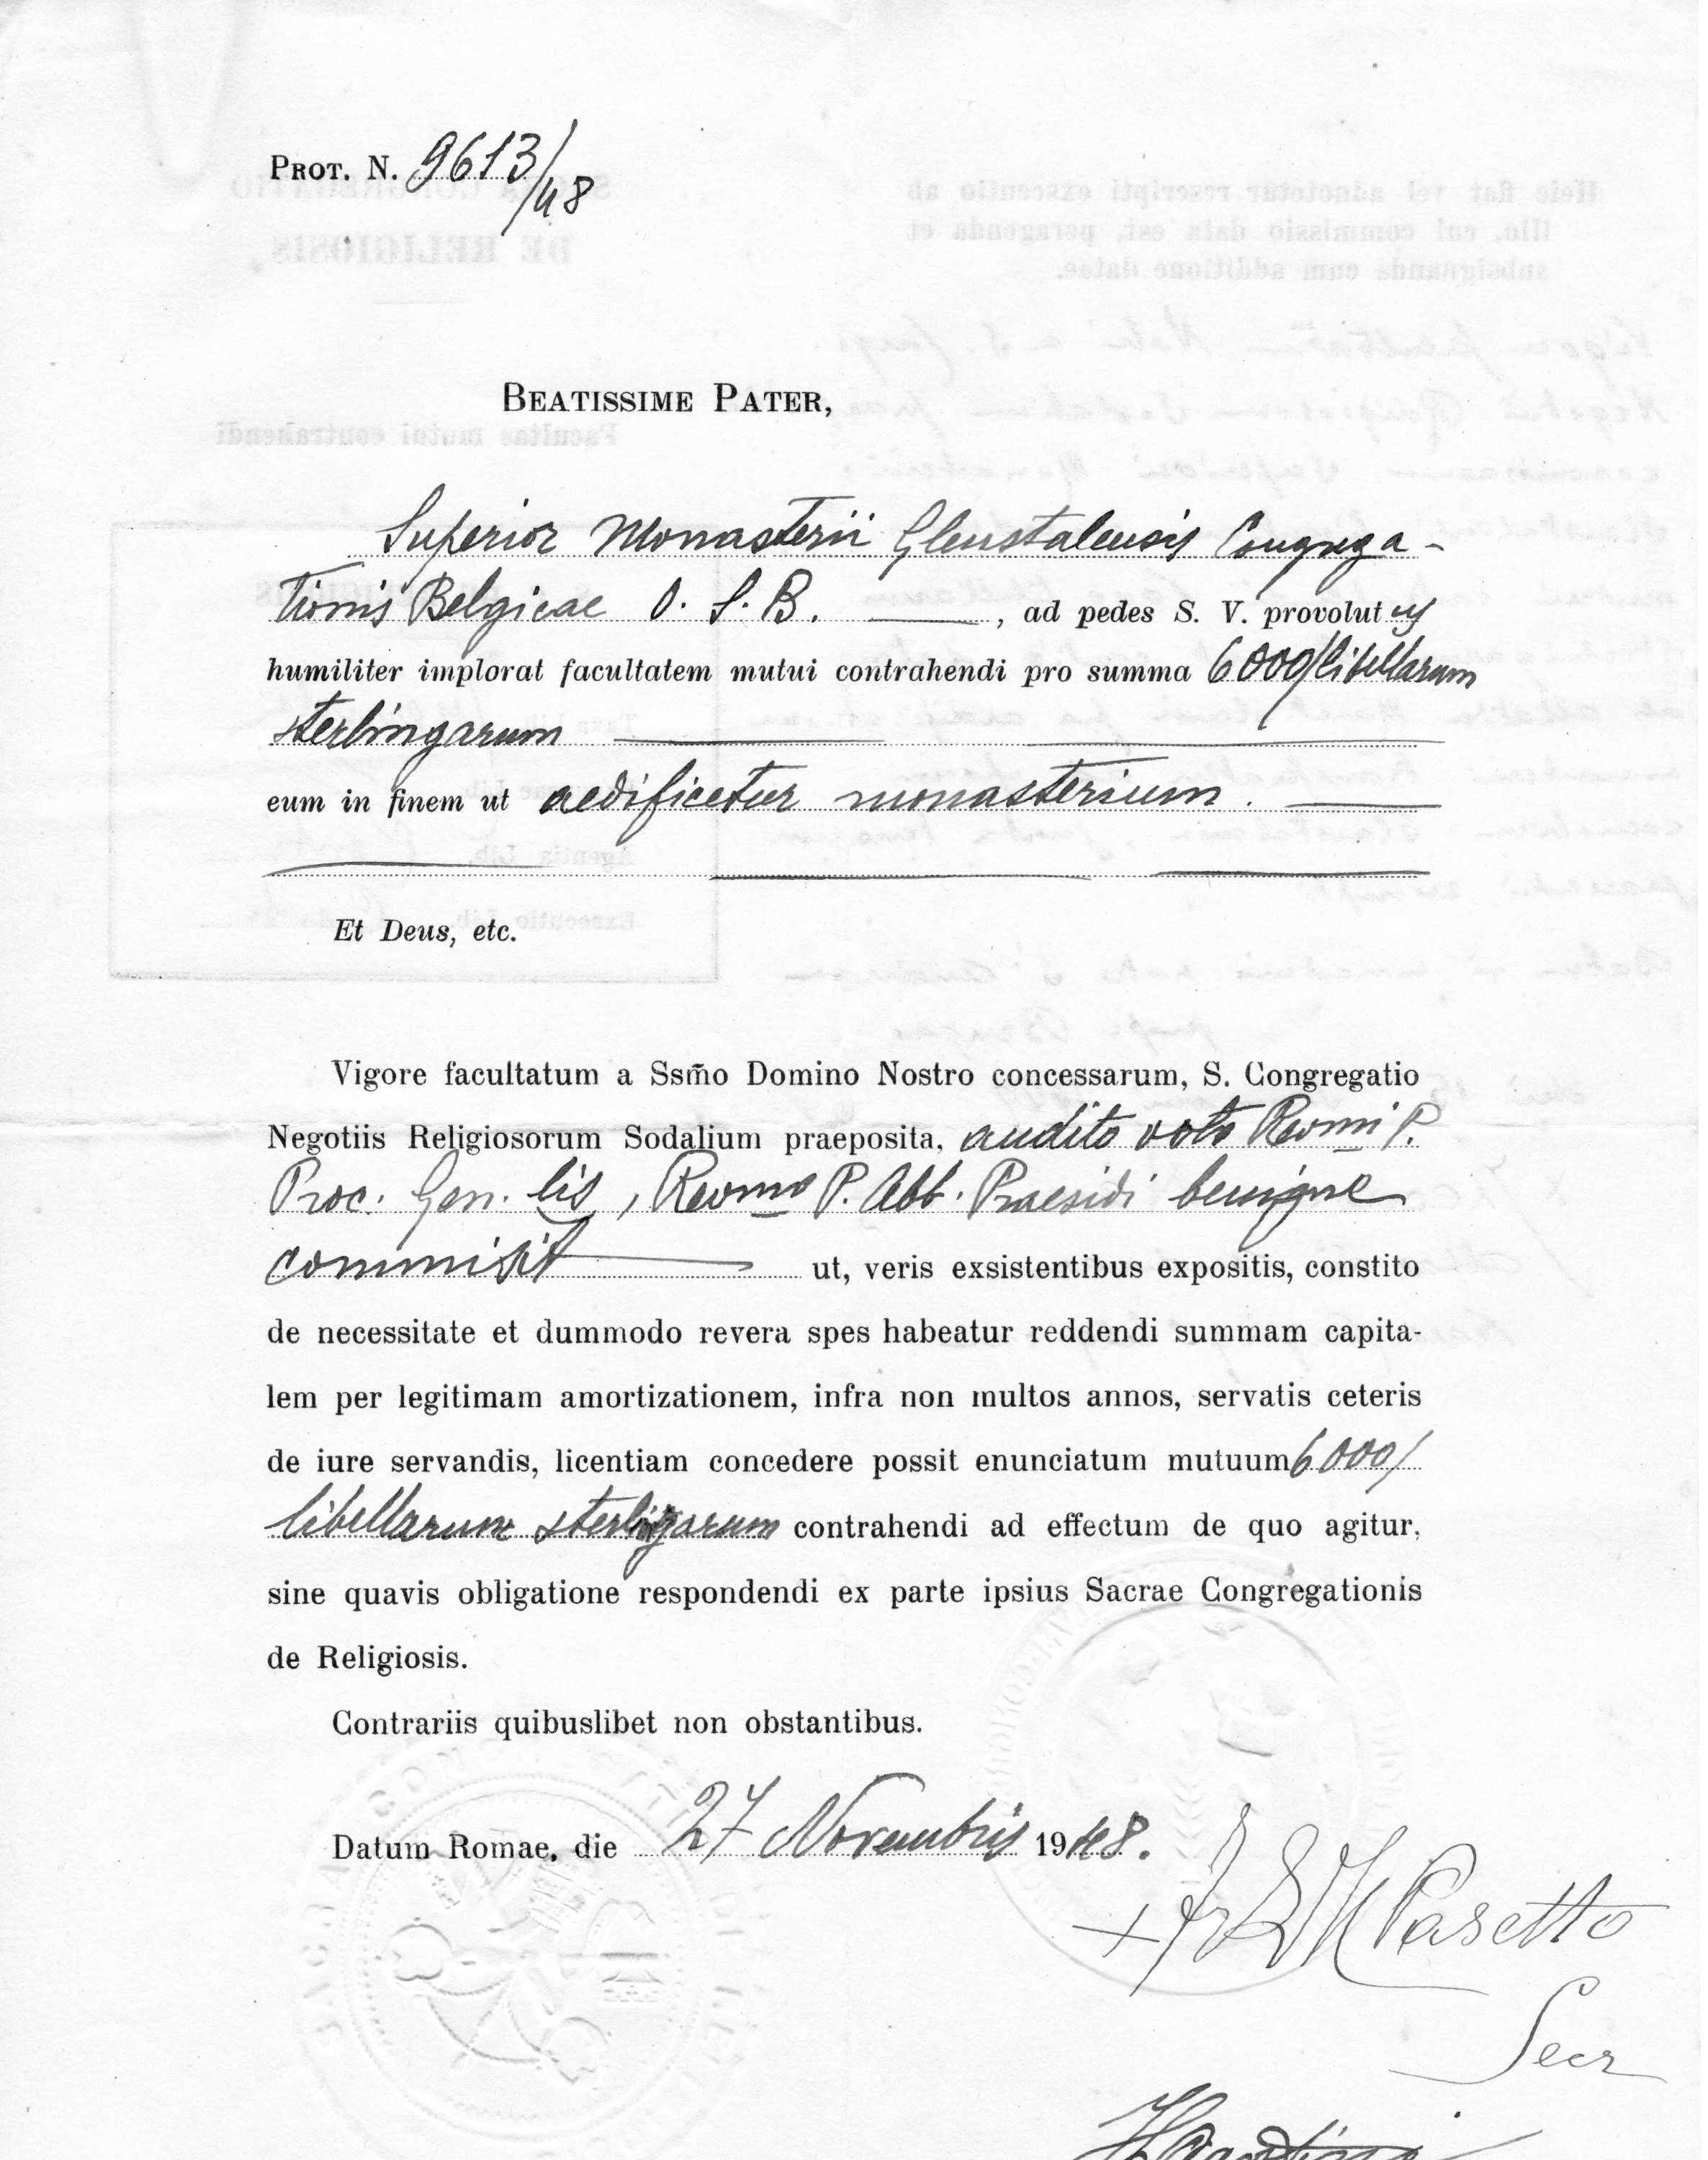 PROT. N. 9613/48
BEATISSIME PATER,
Superior Monasterii Glenstalensis Congrega-
tionis Belgicae O. S. B. ———, ad pedes S. V. provolutus
humiliter implorat facultatem mutui contrahendi pro summa 6000/libellarum
sterlingarum
eum in finem ut aedificetur monasterium.
Et Deus, etc.
Vigore facultatum a Ssm̃o Domino Nostro concessarum, S. Congregatio
Negotiis Religiosorum Sodalium praeposita, audito voto Revmi P.
Proc. Gen.lis, Revmo P. Abb. Praesidi benigne
commisit ut, veris exsistentibus expositis, constito
de necessitate et dummodo revera spes habeatur reddendi summam capita-
lem per legitimam amortizationem, infra non multos annos, servatis ceteris
de iure servandis, licentiam concedere possit enunciatum mutuum 6000/
libellarum sterlingarum contrahendi ad effectum de quo agitur,
sine quavis obligatione respondendi ex parte ipsius Sacrae Congregationis
de Religiosis.
Contrariis quibuslibet non obstantibus.
Datum Romae, die 27 Novembris 1948.
+ Fr L H Pasetto
Secr